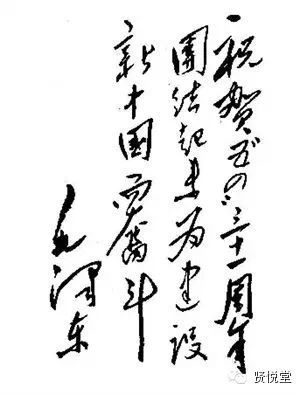 祝賀五四三十一周年
團结起来为建设
新中國而奮斗
毛泽东
贤悦堂